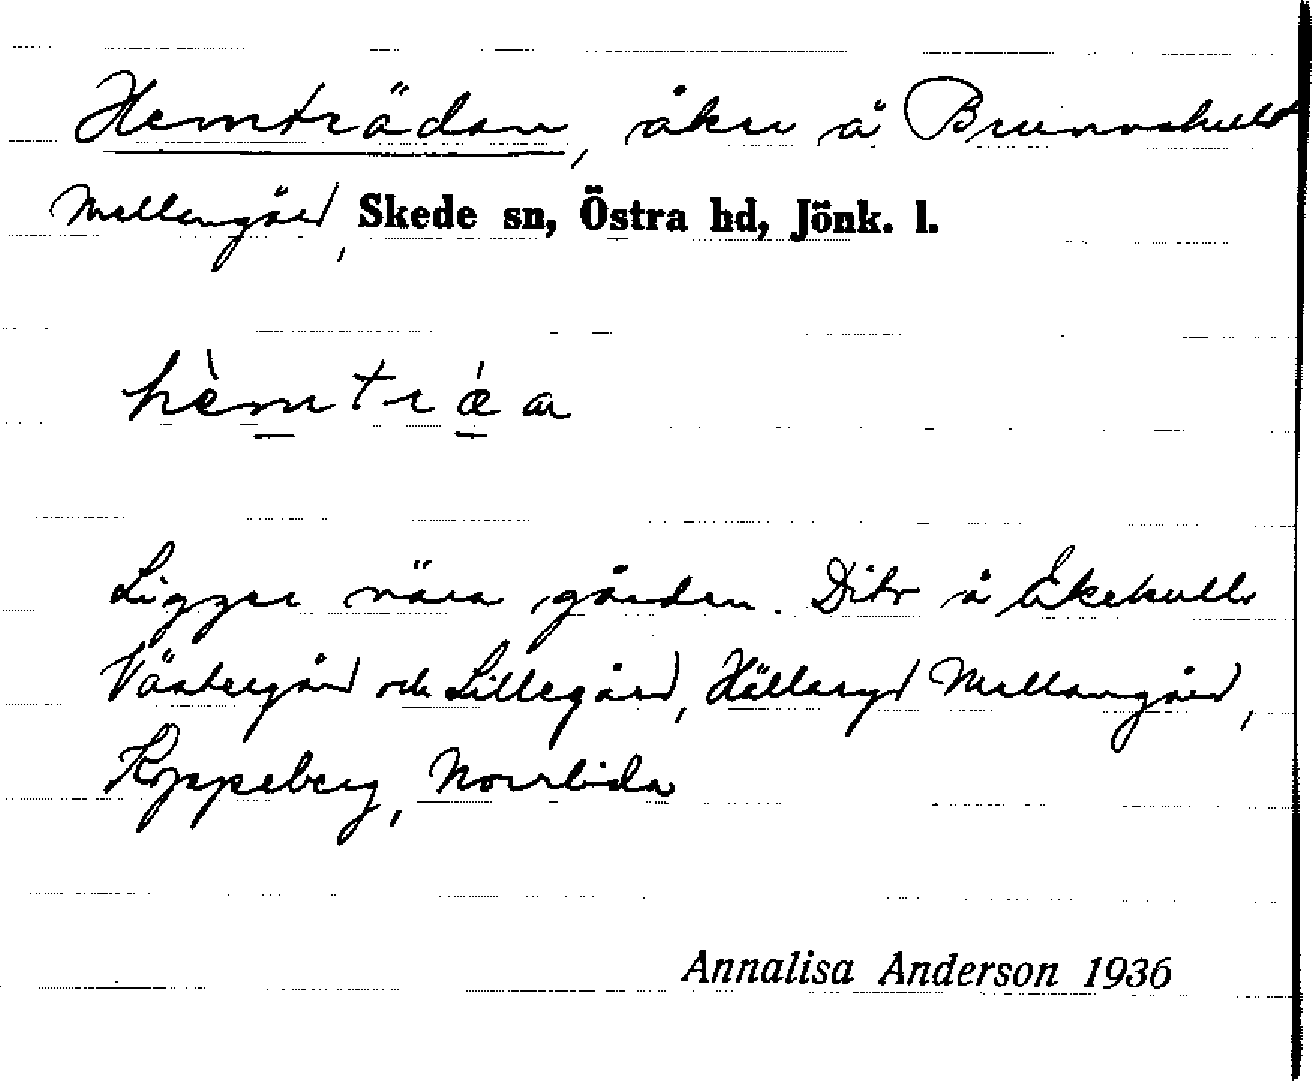 Hemträdan, åker å Brunnshult
Mellangård, Skede sn, Östra hd, Jönk. l.
hèmtráa
Ligger nära gården. Dito å Ekehult
Västergård och Lillegård, Hällaryd Mellangård,
Koppeberg, Norrlida
Annalisa Anderson 1936